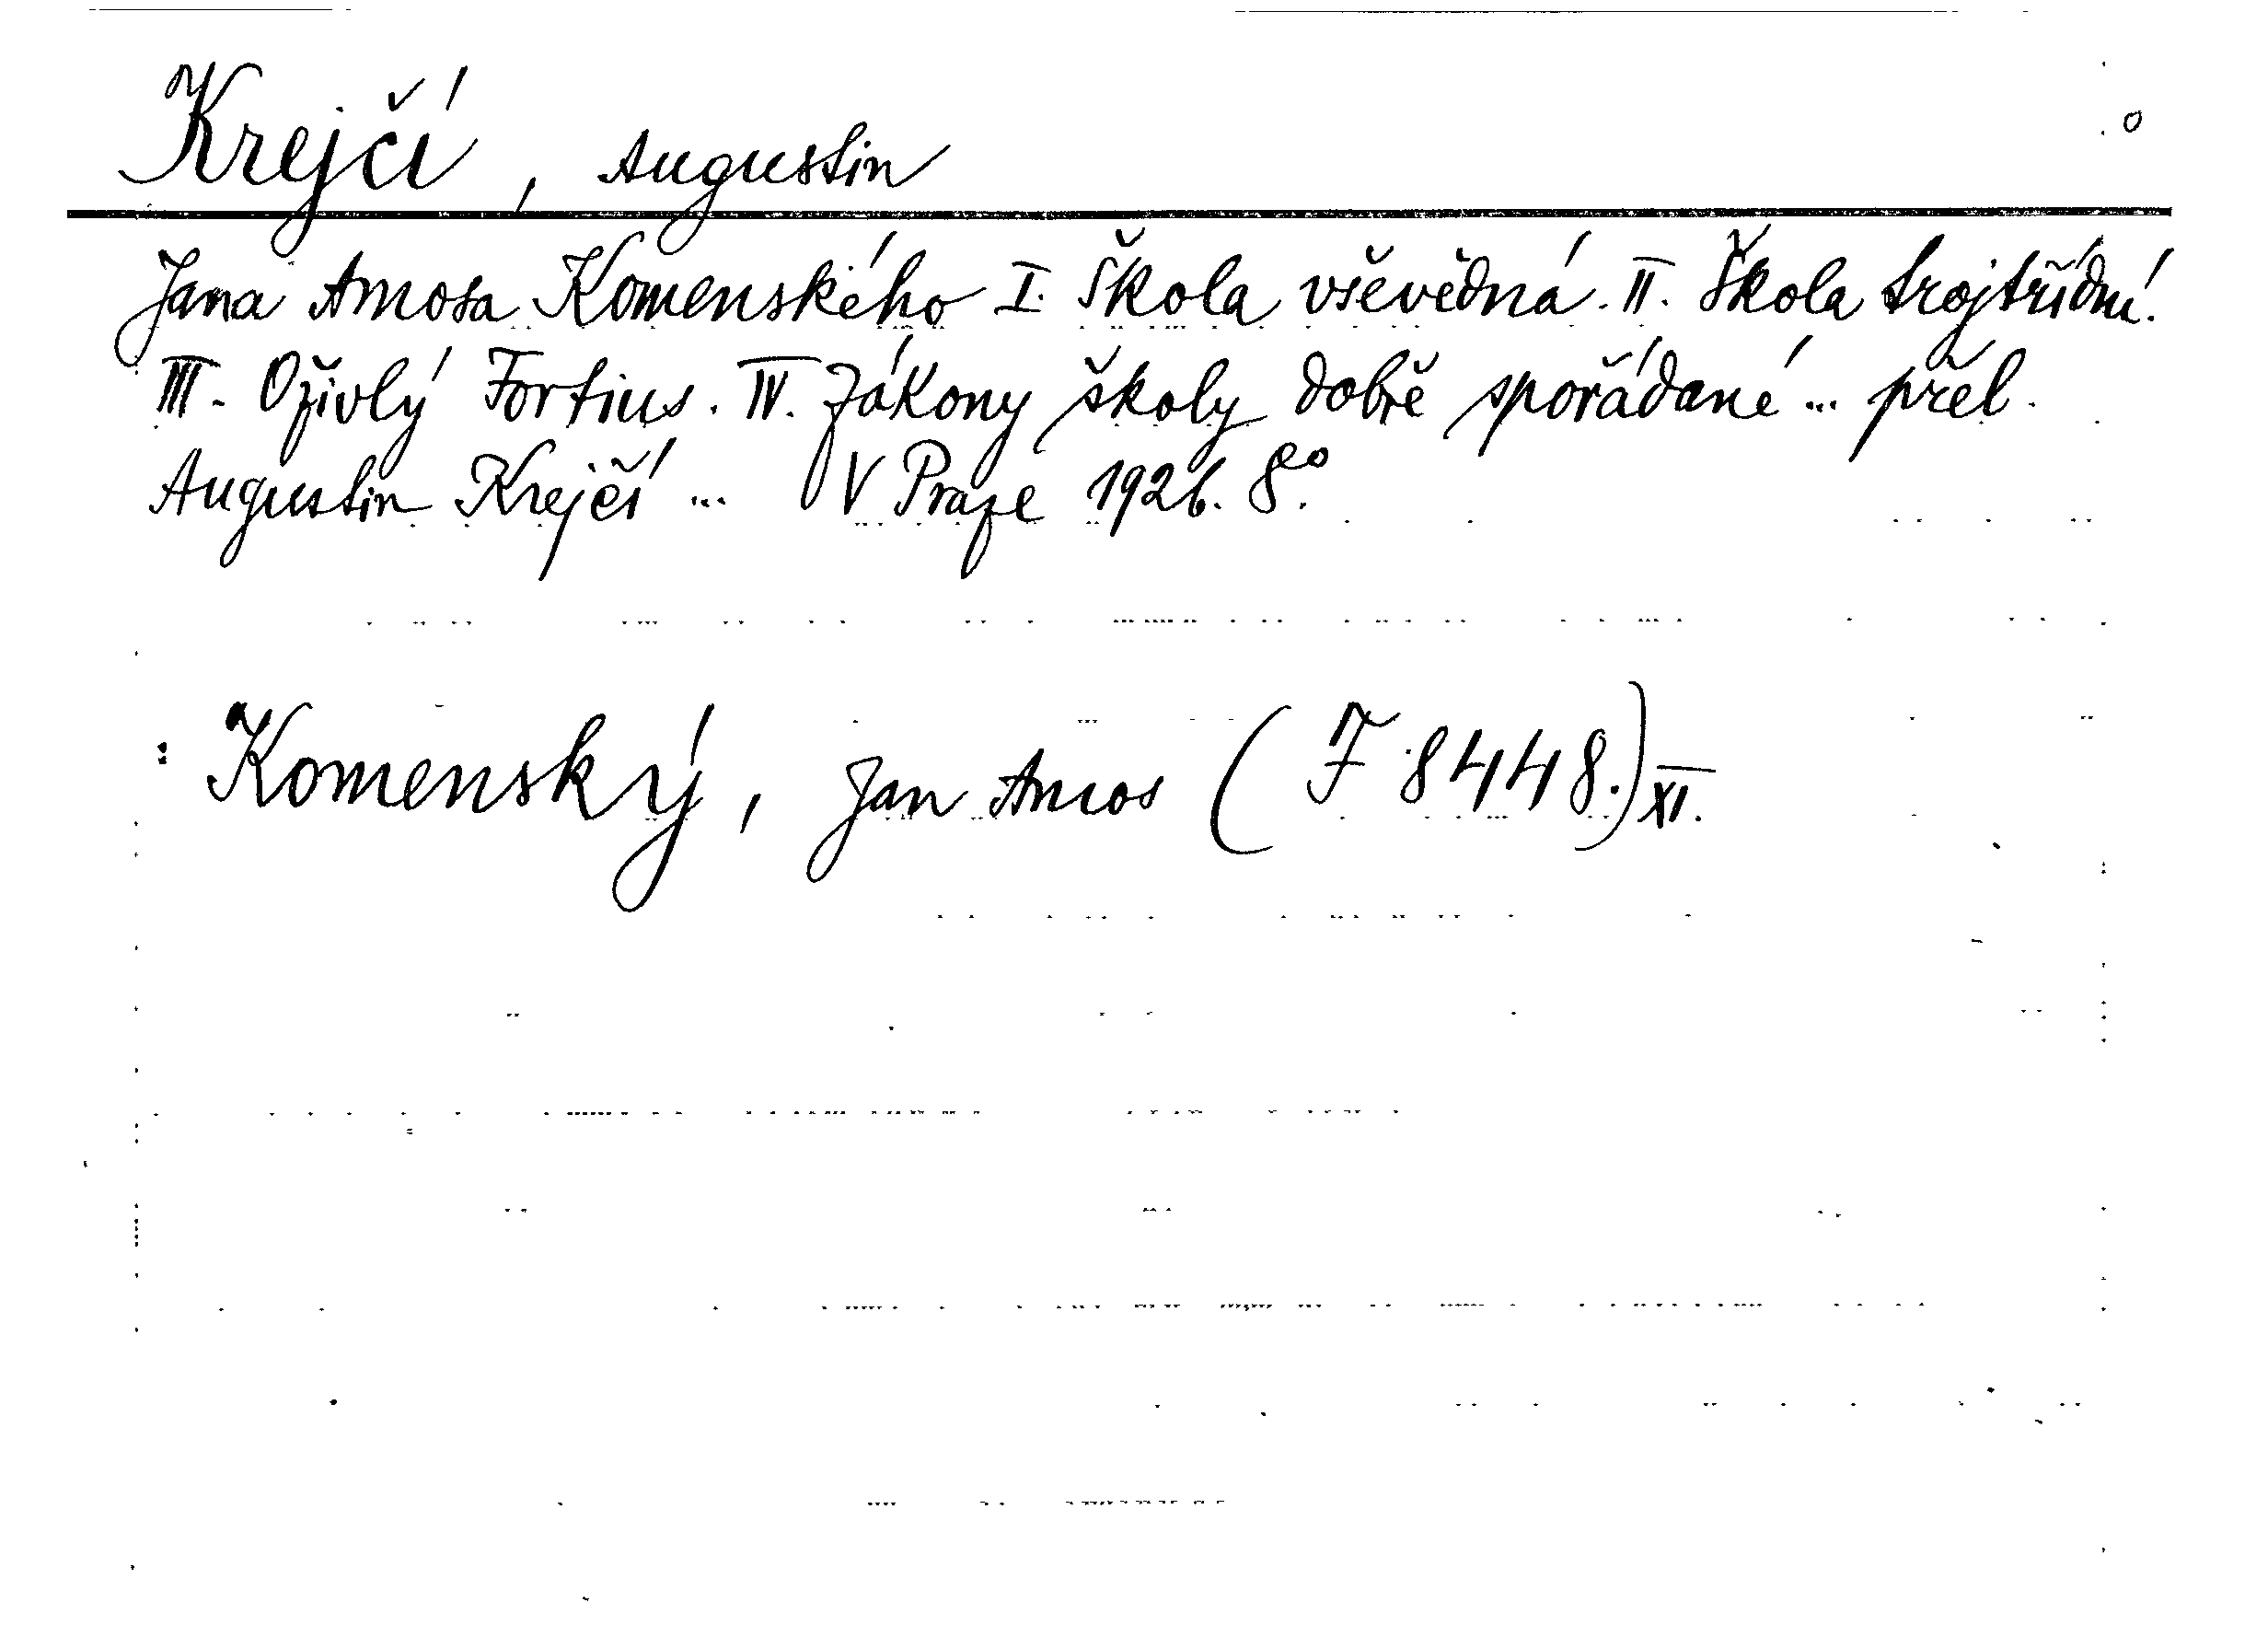 Krejčí, Augustin
Jana Amosa Komenského I. Škola vševědná. II. Škola trojtřídní.
III. Oživlý Fortius. IV. Zákony školy dobře spořádané ... přel.
Augustin Krejčí ... V Praze 1926. 8°.
Komenský, Jan Amos (F 8448.) XI.